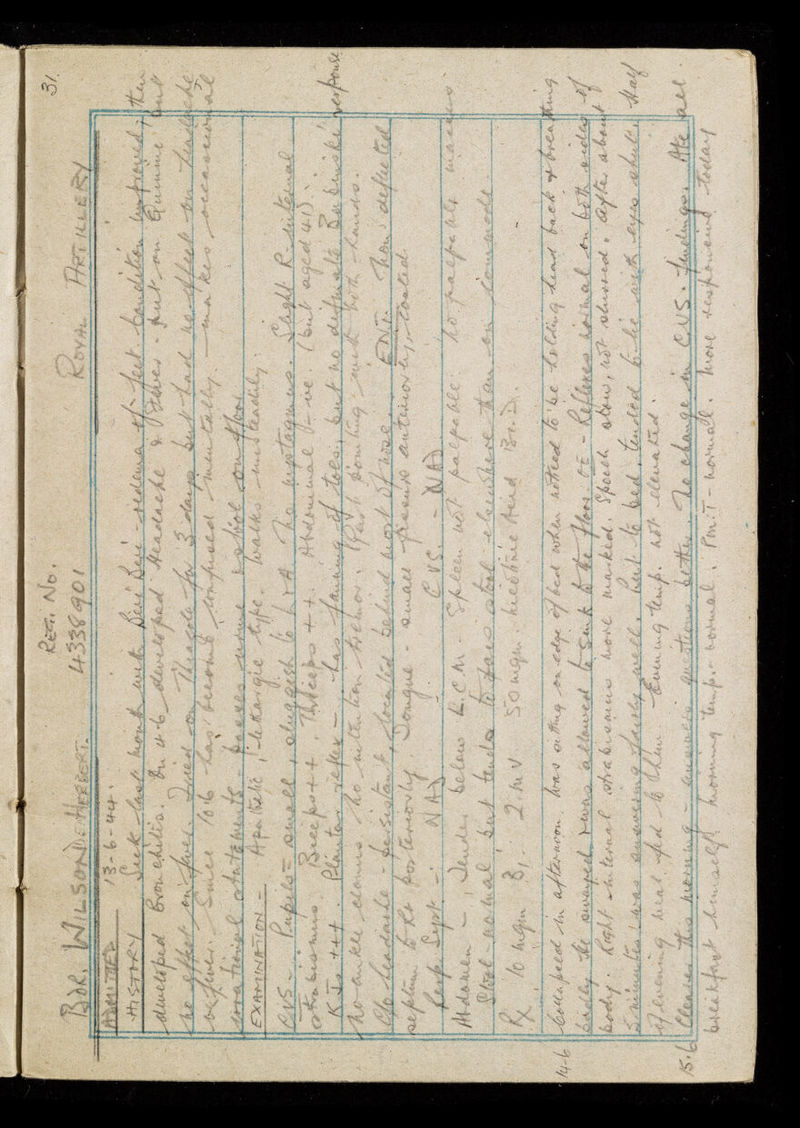 31.
REG. No.
BDR. WILSON HERBERT. 4338901 ROYAL ARTILLERY
ADMITTED 13-6-44.
HISTORY Sick last month with Beri Beri - oedema of feet. Condition improved & then
developed Bronchitis. On 4-6 developed Headache & Fever - put on Quinine but
no effect on fever. Tried on for 3 days but had no effect on headache
or fever. Since 10/6 has become confused mentally - makes occasional
irrational statements - passes urine & stool on floor
EXAMINATION - Apathetic, lethargic type. Walks unsteadily.
CNS - Pupils = small, sluggish to L & A. No nystagmus. Slight R. internal
strabismus. Biceps ++. Triceps ++. Abdominal -ve. (but aged 41).
KJs +++. Plantar reflex - has fanning of toes, but no definite Babinski response
no ankle clonus. No intention tremor. Past pointing with both hands.
C/o headache - persistent, located behind root of nose. ENT. deflected
septum to Rt posteriorly. Tongue - small fissure anteriorly, coated
Resp. Syst - NAD CVS - NAD
Abdomen - Tender below R.C.M. Spleen not palpable. No palpable masses.
Stool - normal but tends to pass stool elsewhere than on commode.
Rx 10 mgm B1. 2 m V 50 mgm Nicotinic Acid B.D.
14-6 Collapsed in afternoon. Was sitting on edge of bed when noticed to be holding head back & breathing
badly. He swayed & was allowed to sink to the floor. OE - Reflexes normal on both sides of
body. Right internal strabismus more marked. Speech slow, not slurred. After about
5 minutes was answering fairly well. Sent to bed, tended to lie with eyes shut. Half
of evening meal fed to him. Evening temp. not elevated.
15.6 Clearer this morning - answers questions better. No change in CNS. findings. Ate all
breakfast himself. Morning temp. - normal. Pm. T - normal. More responsive today